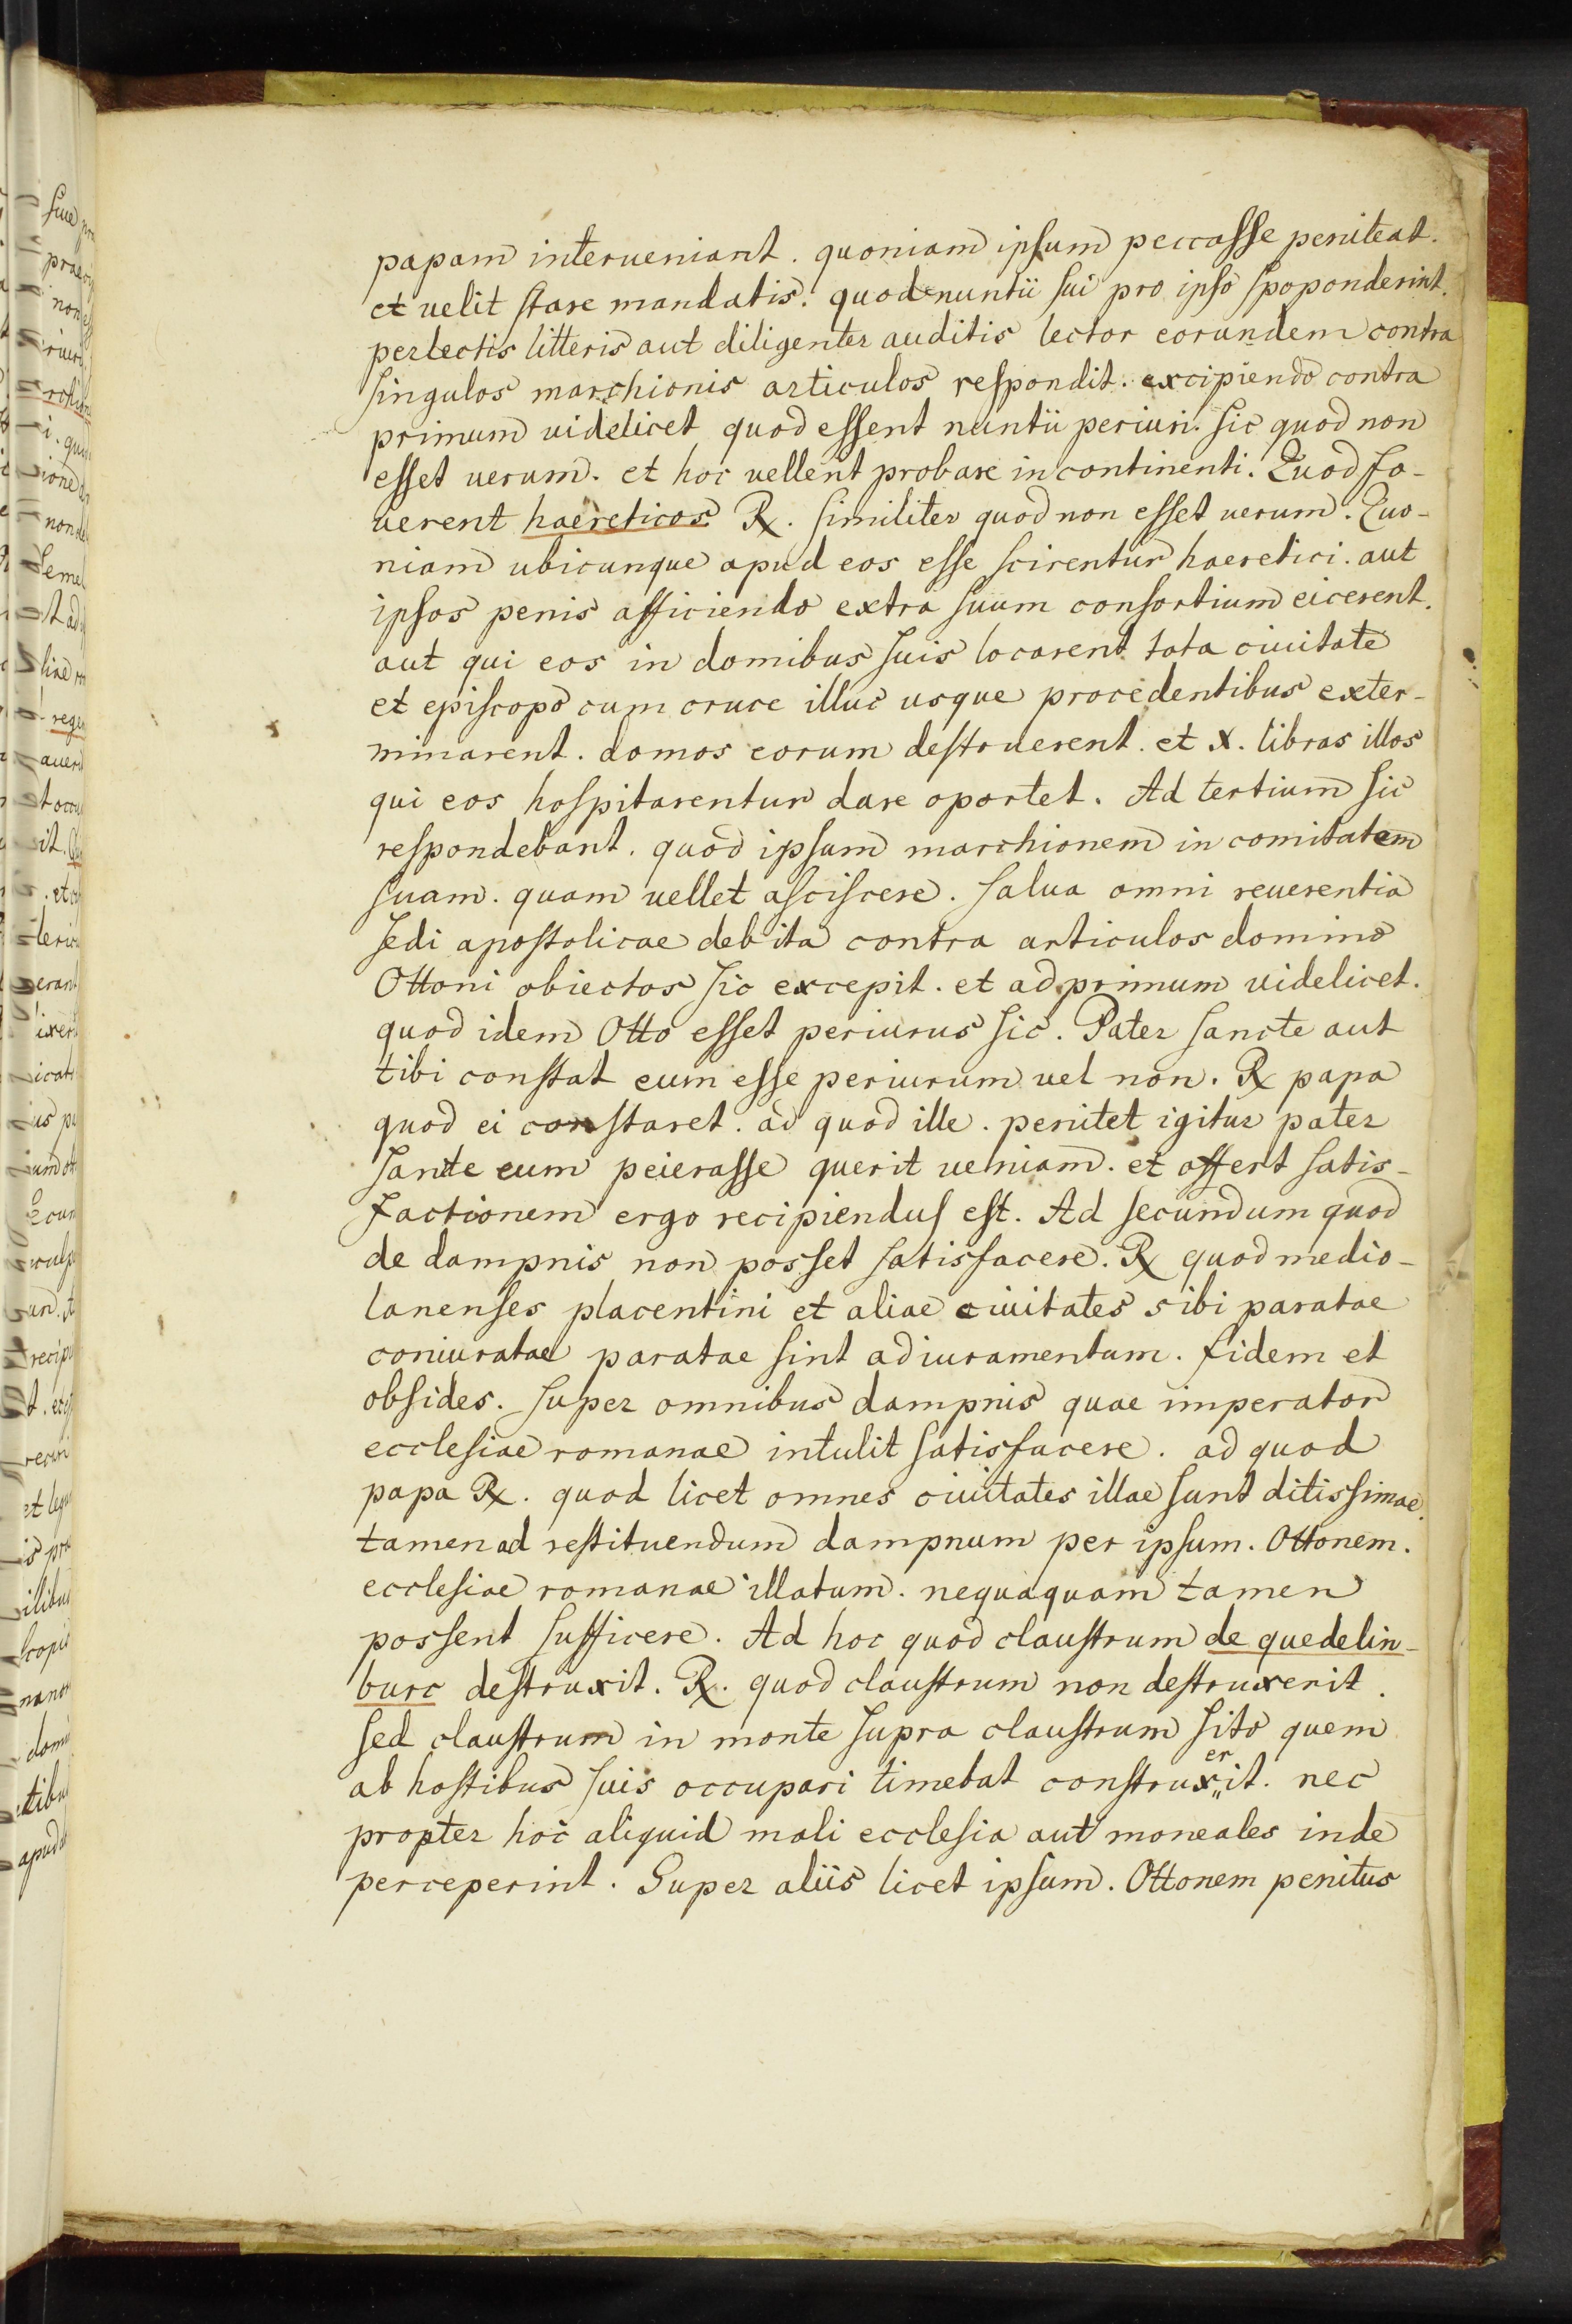 papam interueniant. quoniam ipsum peccasse peniteat.
et uelit stare mandatis. quod nuntii sui pro ipso spoponderint.
perlectis litteris aut diligenter auditis lector eorundem contra
singulos marchionis articulos respondit. excipiendo contra
primum uidelicet quod essent nuntii periuri. sic quod non
esset uerum. et hoc uellent probare in continenti. Quod fo-
uerent haereticos. R. similiter quod non esset uerum. Quo-
niam ubicunque apud eos esse scirentur haeretici. aut
ipsos penis afficiendo extra suum consortium eicerent.
aut qui eos in domibus suis locarent tota ciuitate
et episcopo cum cruce illuc usque procedentibus exter-
minarent. domos eorum destruerent. et X. libras illos
qui eos hospitarentur dare oportet. Ad tertium sic
respondebant. quod ipsum marchionem in comitatem
suam. quam uellet asciscere. salua omni reuerentia
sedi apostolicae debita contra articulos domino
Ottoni obiectos sic excepit. et ad primum uidelicet.
quod idem Otto esset periurus sic. Pater sancte aut
tibi constat eum esse periurum uel non. R papa
quod ei constaret. ad quod ille. penitet igitur pater
sante eum peierasse querit ueniam. et offert satis-
factionem ergo recipiendus est. Ad secundum quod
de dampnis non posset satisfacere. R quod medio-
lanenses placentini et aliae ciuitates sibi paratae
coniuratae paratae sint ad iuramentum. fidem et
obsides. super omnibus dampnis quae imperator
ecclesiae romanae intulit satisfacere. ad quod
papa R. quod licet omnes ciuitates illae sunt ditissimae.
tamen ad restituendum dampnum per ipsum. Ottonem.
ecclesiae romanae illatum. nequaquam tamen
possent sufficere. Ad hoc quod claustrum de quedelin-
burc destruxit. R. quod claustrum non destruxerit.
sed claustrum in monte supra claustrum sito quem
ab hostibus suis occupari timebat construxerit. nec
propter hoc aliquid mali ecclesia aut moneales inde
perceperint. Super aliis licet ipsum. Ottonem penitus